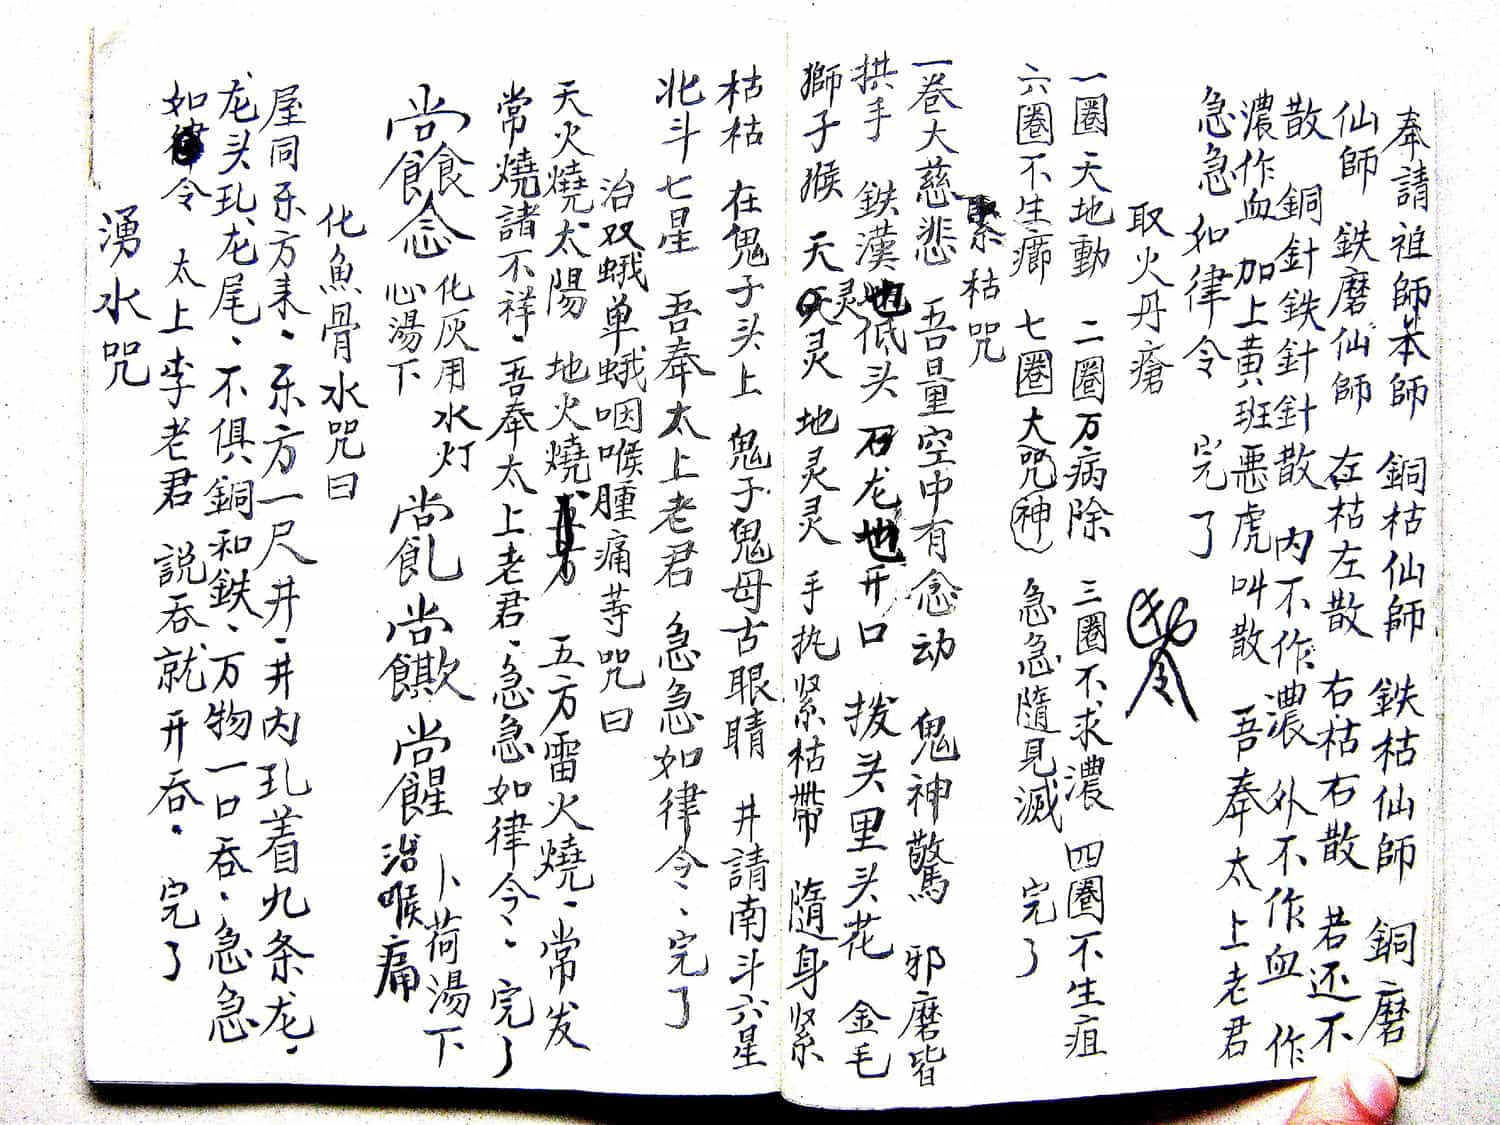 奉請祖師本師 銅枯仙師 鉄枯仙師 銅磨
仙師 鉄磨仙師 左枯左散 右枯右散 若还不
散 銅針鉄針針散 内不作濃 外不作血 作
濃作血 加上黄班悪虎叫散 吾奉太上老君
急急如律令 完了
取火丹瘡
一圈天地動 二圈万病除 三圈不求濃 四圈不生疽
六圈不生癤 七圈大咒神 急急隨見滅 完了
緊枯咒
一巻大慈悲 吾量空中有念动 鬼神驚 邪磨皆
拱手 鉄漢低头 召龙地开口 拨头里头花 金毛
獅子猴 天灵灵 地灵灵 手执紧枯帶 隨身紧
枯枯 在鬼子头上 鬼子鬼母古眼睛 井請南斗六星
北斗七星 吾奉太上老君 急急如律令、完了
治双蛾单蛾咽喉腫痛等咒曰
天火燒太陽 地火燒方 五方雷火燒、常发
常燒諸不祥、吾奉太上老君、急急如律令、完了
化灰用水灯
心湯下
卜荷湯下
治喉痛
化魚骨水咒曰
屋同乐方来、乐方一尺井、井内孔着九条龙、
龙头孔龙尾、不俱銅和鉄、万物一口吞、急急
如律令 太上李老君 說吞就开吞、完了
湧水咒